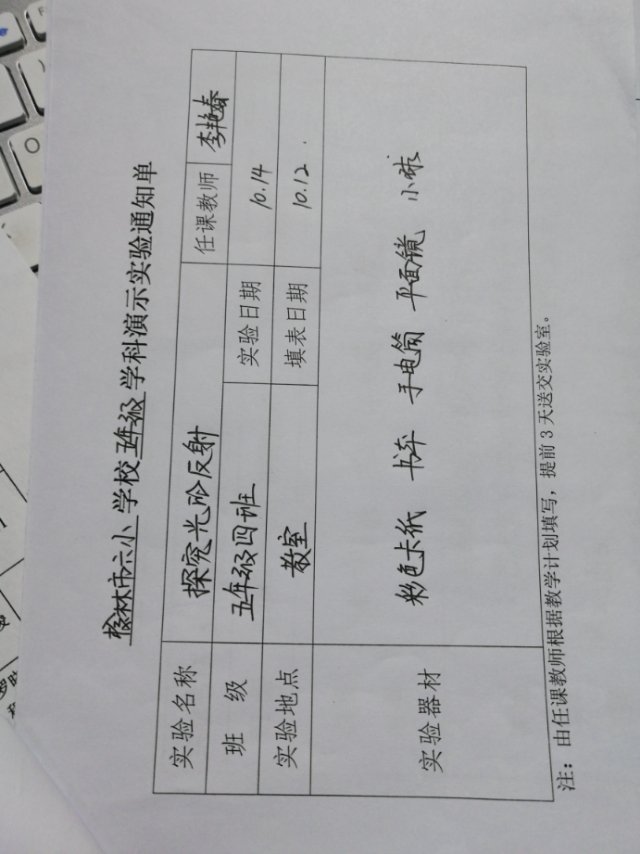 榆林市六小学校五年级学科演示实验通知单
实验名称 探究光的反射 任课教师 李艳春
班 级 五年级四班 实验日期 10.14
实验地点 教室 填表日期 10.12.
实验器材 彩色卡纸 书本 手电筒 平面镜 小球
注：由任课教师根据教学计划填写，提前3天送交实验室。